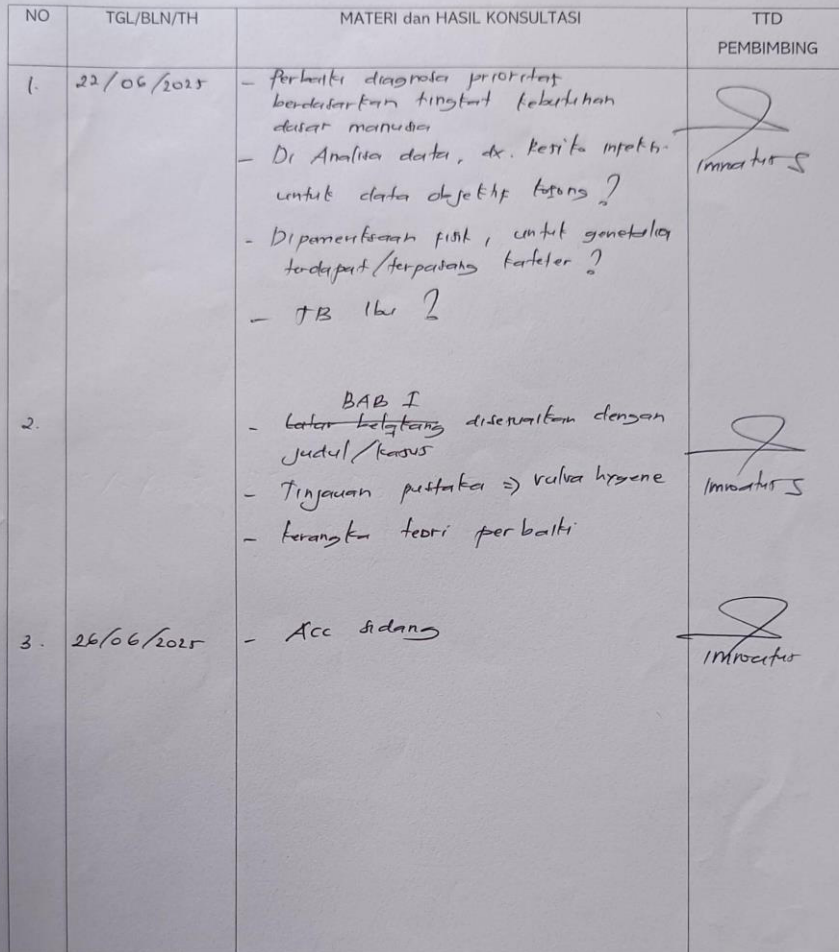 NO TGL/BLN/TH MATERI dan HASIL KONSULTASI TTD PEMBIMBING
1. 22/06/2025 - Perbaiki diagnosa prioritas
berdasarkan tingkat kebutuhan
dasar manusia
- Di Analisa data, dx. Resiko infeksi
untuk data objektif kosong ?
Imroatus S
- Dipemeriksaan fisik, untuk genetalia
terdapat/terpasang kateter ?
- TB Ibu ?
BAB I
2. - Latar belakang disesuaikan dengan
judul/kasus
- Tinjauan pustaka => vulva hygene
Imroatus S
- Kerangka teori perbaiki
3. 26/06/2025 - Acc sidang
Imroatus